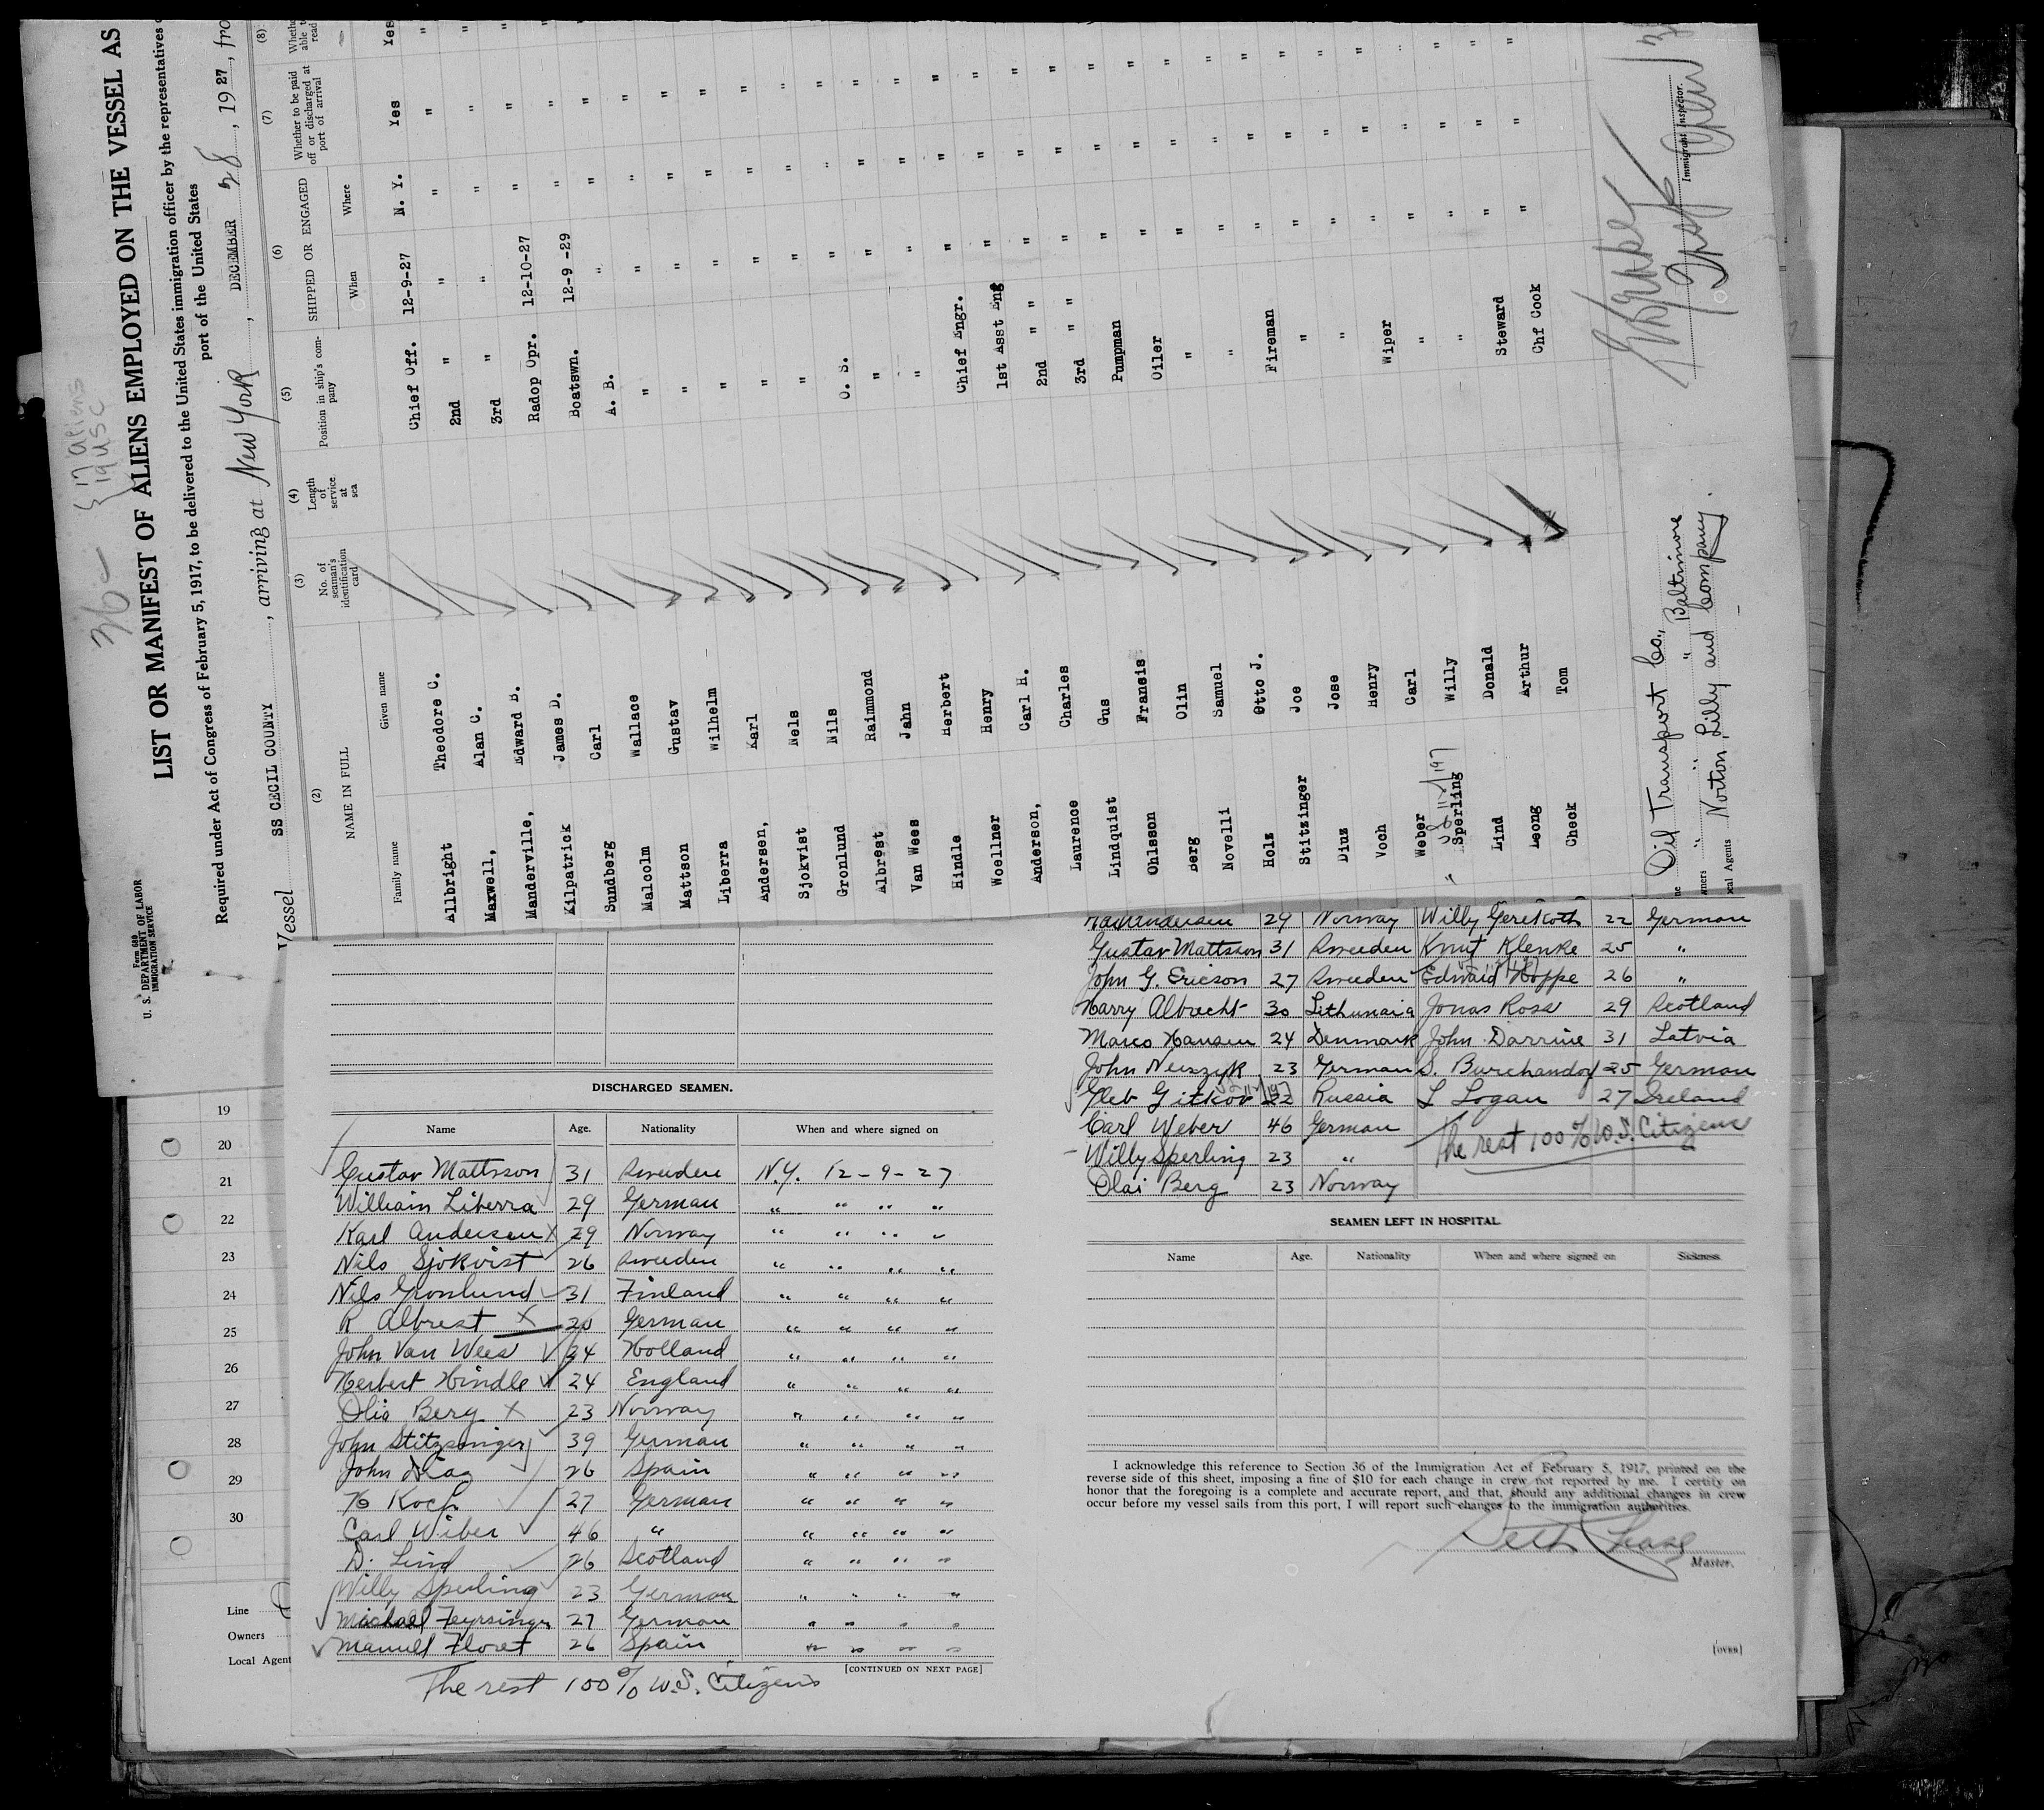 36 - { 17 aliens
19 USC
Form 680
U. S. DEPARTMENT OF LABOR
IMMIGRATION SERVICE
LIST OR MANIFEST OF ALIENS EMPLOYED ON THE VESSEL AS
Required under Act of Congress of February 5, 1917, to be delivered to the United States immigration officer by the representatives
port of the United States
Vessel SS CECIL COUNTY, arriving at New York, DECEMBER 28, 1927, fro
(2) (3) (4) (5) (6) (7) (8)
NAME IN FULL
Family name Given name
No. of seaman's identification card
Length of service at sea
Position in ship's company
SHIPPED OR ENGAGED
When Where
Whether to be paid off or discharged at port of arrival
Allbright Theodore C. Chief Off. 12-9-27 N. Y. Yes Yes
Maxwell, Alan C. 2nd " " " " "
Manderville, Edward B. 3rd " " " " "
Kilpatrick James D. Radop Opr. 12-10-27 " " "
Sundberg Carl Boatswn. 12-9 -29 " " "
Malcolm Wallace A. B. " " " "
Mattson Gustav " " " " "
Liberra Wilhelm " " " " "
Andersen, Karl " " " " "
Sjokvist Nels " " " " "
Gronlund Nils " " " " "
Albrest Raimmond O. S. " " " "
Van Wees Jahn " " " " "
Hindle Herbert " " " " "
Woellner Henry Chief Engr. " " " "
Anderson, Carl H. 1st Asst Eng " " " "
Laurence Charles 2nd " " " " " "
Lindquist Gus 3rd " " " " " "
Ohlsson Fransis Pumpman " " " "
Berg Olin Oiler " " " "
Novelli Samuel " " " " "
Holz Otto J. " " " " "
Stitzinger Joe Fireman " " " "
Diuz Jose " " " " "
Voch Henry " " " " "
Weber Carl Wiper " " " "
Sperling Willy " " " " "
Lind Donald " " " " "
Leong Arthur Steward " " " "
Check Tom Chf Cook " " " "
Oil Transport Co., Baltimore
wners " " "
cal Agents Norton, Lilly and Company.
Immigrant Inspector.
19
20
21
22
23
24
25
26
27
28
29
30
Line
Owners
Local Agent
DISCHARGED SEAMEN.
Name Age. Nationality When and where signed on
Gustav Mattsson 31 Sweeden N.Y. 12-9-27
William Liberra 29 German " " " "
Karl Andersen X 29 Norway " " " "
Nils Sjokvist 26 Sweeden " " " "
Nils Gronlund 31 Finland " " " "
R Albrest X 20 German " " " "
John Van Wees 34 Holland " " " "
Herbert Hindle 24 England " " " "
Olia Berg X 23 Norway " " " "
John Stitzsinger 39 German " " " "
John Diaz 26 Spain " " " "
H Koch 27 German " " " "
Carl Wiber 46 " " " " "
D. Lind 26 Scotland " " " "
Willy Sperling 23 German " " " "
Michael Feyrsinger 27 German " " " "
Manuel Floret 26 Spain " " " "
[CONTINUED ON NEXT PAGE]
The rest 100% U.S. Citizens
29 Norway Willy Geretkoth 22 German
Gustav Mattsson 31 Sweeden Knut Klenke 25 "
John G. Ericson 27 Sweeden Edward Hoppe 26 "
Harry Albrecht 30 Lithunaia Jonas Ross 29 Scotland
Marco Hansen 24 Denmark John Darrine 31 Latvia
John Neiszyk 23 German S. Burchandorf 25 German
Gleb Gitkov 22 Russia L Logan 27 Ireland
Carl Weber 46 German
The rest 100% U.S. Citizens
Willy Sperling 23 "
Olai Berg 23 Norway
SEAMEN LEFT IN HOSPITAL
Name Age. Nationality When and where signed on Sickness
I acknowledge this reference to Section 36 of the Immigration Act of February 5, 1917, printed on the
reverse side of this sheet, imposing a fine of $10 for each change in crew not reported by me. I certify on
honor that the foregoing is a complete and accurate report, and that, should any additional changes in crew
occur before my vessel sails from this port, I will report such changes to the immigration authorities.
Master.
[OVER]